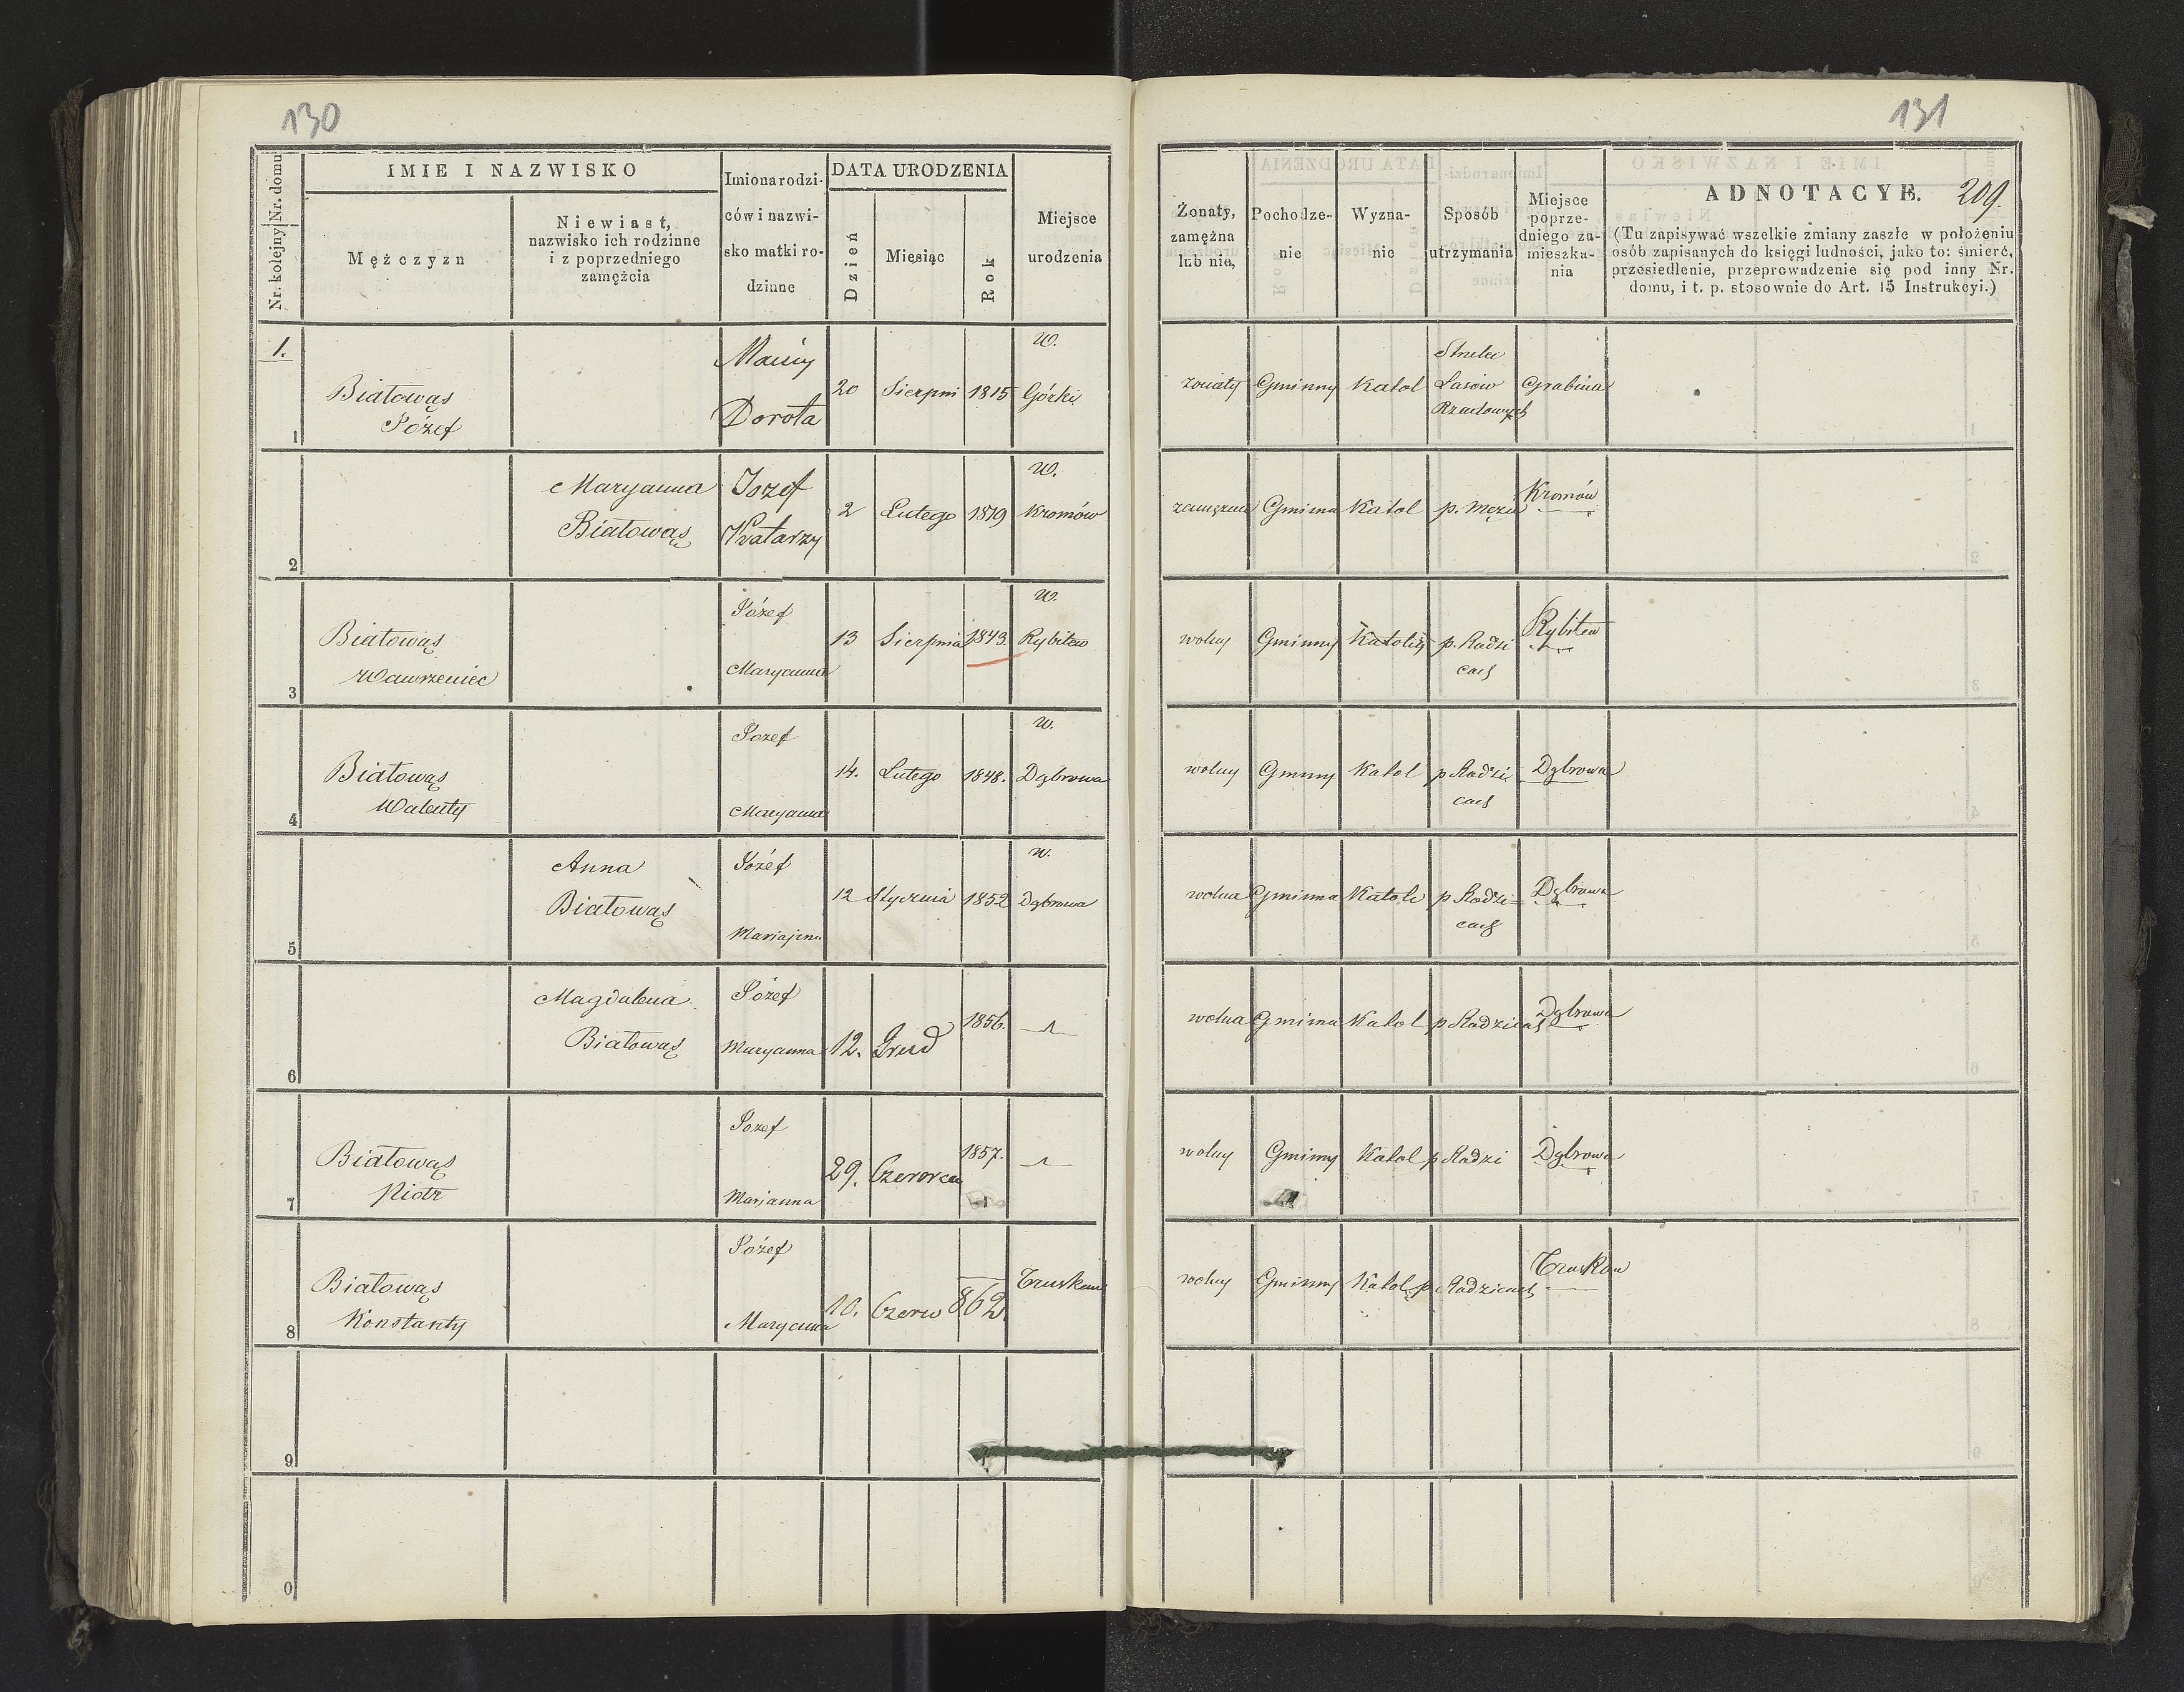 130
Nr. kolejny Nr. domu
IMIE I NAZWISKO
Mężczyzn
Niewiast,
nazwisko ich rodzinne
i z poprzedniego
zamęzcia
Imiona rodzi-
ców i nazwi-
sko matki ro-
dzinne
DATA URODZENIA
Dzień
Miesiąc
Rok
Miejsce
urodzenia
1.
1
Białowąs
Józef
Dorota
20
Sierpni
1815
w.
Górki
2
Maryanna
Białowąs
Jozef
Katarzy
2
Lutego
1819
w.
Kromów
3
Białowąs
Wawrzeniec
Józef
Maryanna
13
Sierpnia
1843.
w.
Rybitew
4
Białowąs
Walenty
Jozef
Maryanna
14.
Lutego
1848.
w.
Dąbrowa
5
Anna
Białowąs
Józéf
12
Stycznia
1852
w.
Dąbrowa
6
Magdalena
Białowąs
Józef
Maryanna
12.
Grud
1856.
7
Białowąs
Piotr
Jozef
Marjanna
29.
Czerwca
1857.
8
Białowąs
Konstanty
Józef
Maryanna
10.
Czerw
862
Truskaw
9
0
131
Żonaty,
zamężna
lub nie,
Pochodze-
nie
Wyzna-
nie
Sposób
utrzymania
Miejsce
poprze-
dniego za-
mieszka-
nia
ADNOTACYE. 209.
(Tu zapisywać wszelkie zmiany zaszłe w położeniu
osób zapisanych do księgi ludności, jako to: śmierć,
przesiedlenie, przeprowadzenie się pod inny Nr.
domu, i t. p. stosownie do Art. 15 Instrukcyi.)
żonaty Gminny Katol
Strzelec
Lasów
Rządowych
Grabina
zamężna Gminna Katol p. Męzu Kromów
wolny Gminny Katolik p. Radzi
cach
Rybitew
wolny Gminny Katol p Radzi
cach
Dąbrowa
wolna Gminna Katoli p Radzi-
cach
Dąbrowa
wolna Gminna Katol p Radzicach Dąbrowa
wolny Gminny Katol p Radzi Dąbrowa
wolny Gminny Katol p Radzicach Truskaw